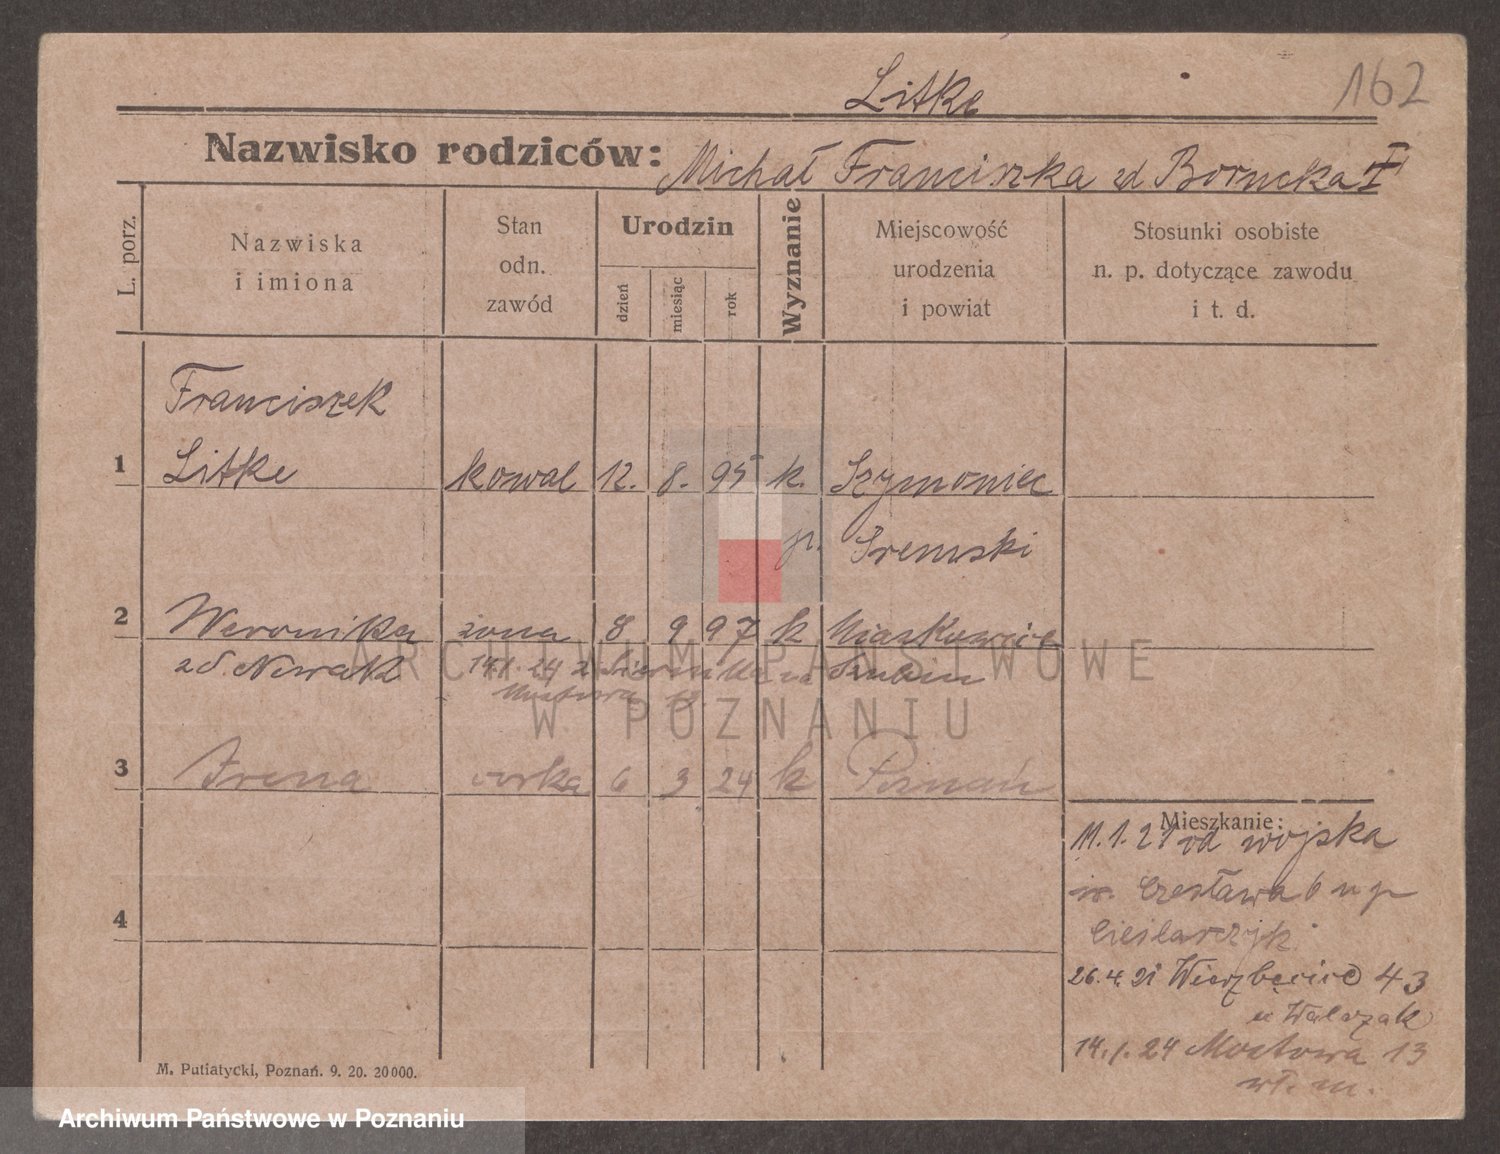 Litke
162
Nazwisko rodziców: Michał Franciszka zd Borucka
L. porz.
Nazwiska i imiona
Stan odn. zawód
Urodzin
dzień
miesiąc
rok
Wyznanie
Miejscowość urodzenia i powiat
Stosunki osobiste n. p. dotyczące zawodu i t. d.
Franciszek
1 Litke kowal 12. 8. 95 k. Szymoniec
p. Śremski
2 Weronika żona 8 9 97 k
zd. Nowak 14.1.24 z Szubin
Mostowa 13
3 Irena córka 6 3 24 k Poznań
4
Mieszkanie:
11.1.21 od wojska
św. Czesława 6 u p
Cieślarczyk
26.4.21 Wierzbięcice 43
u Walczak
14.1.24 Mostowa 13
wł. m.
M. Putiatycki, Poznań. 9. 20. 20000.
ARCHIWUM PAŃSTWOWE
W POZNANIU
Archiwum Państwowe w Poznaniu